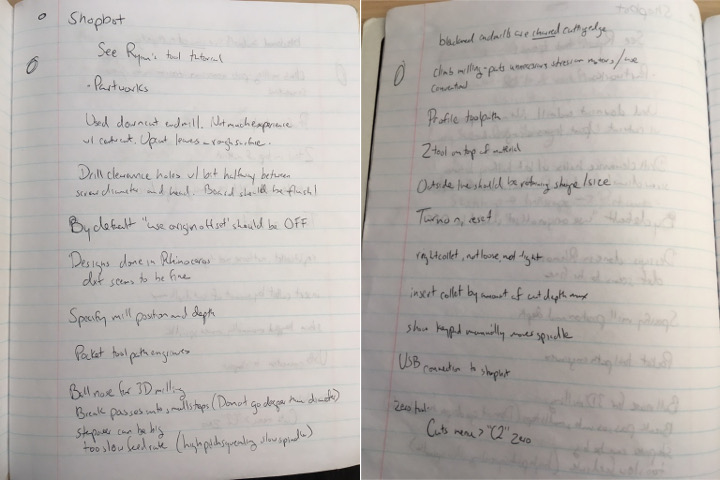 Shopbot
See Ryan's tool tutorial
- Partworks
Used downcut endmill. Not much experience
w/ contour. Upcut leaves rough surface.
Drill clearance holes w/ bit halfway between
screw diameter and head. Board should be flush!
By default "use origin offset" should be OFF
Designs done in Rhinoceros
dxf seems to be fine
Specify mill position and depth
Pocket toolpath engraves
Ball nose for 3D milling
Break passes into small steps (Do not go deeper than diameter)
stepover can be big
too slow feed rate (high pitch squealing slow spindle)
blackened endmills are cutting edge
climb milling - puts unnecessary stress on motors / use
conventional
Profile toolpath
Z tool on top of material
Outside line should be retaining shape/size
Turn on, reset
right collet, not loose, not tight
insert collet by amount of cut depth max
show keypad manually moves spindle
USB connection to shopbot
Zero tool:
Cuts menu > "C2" zero